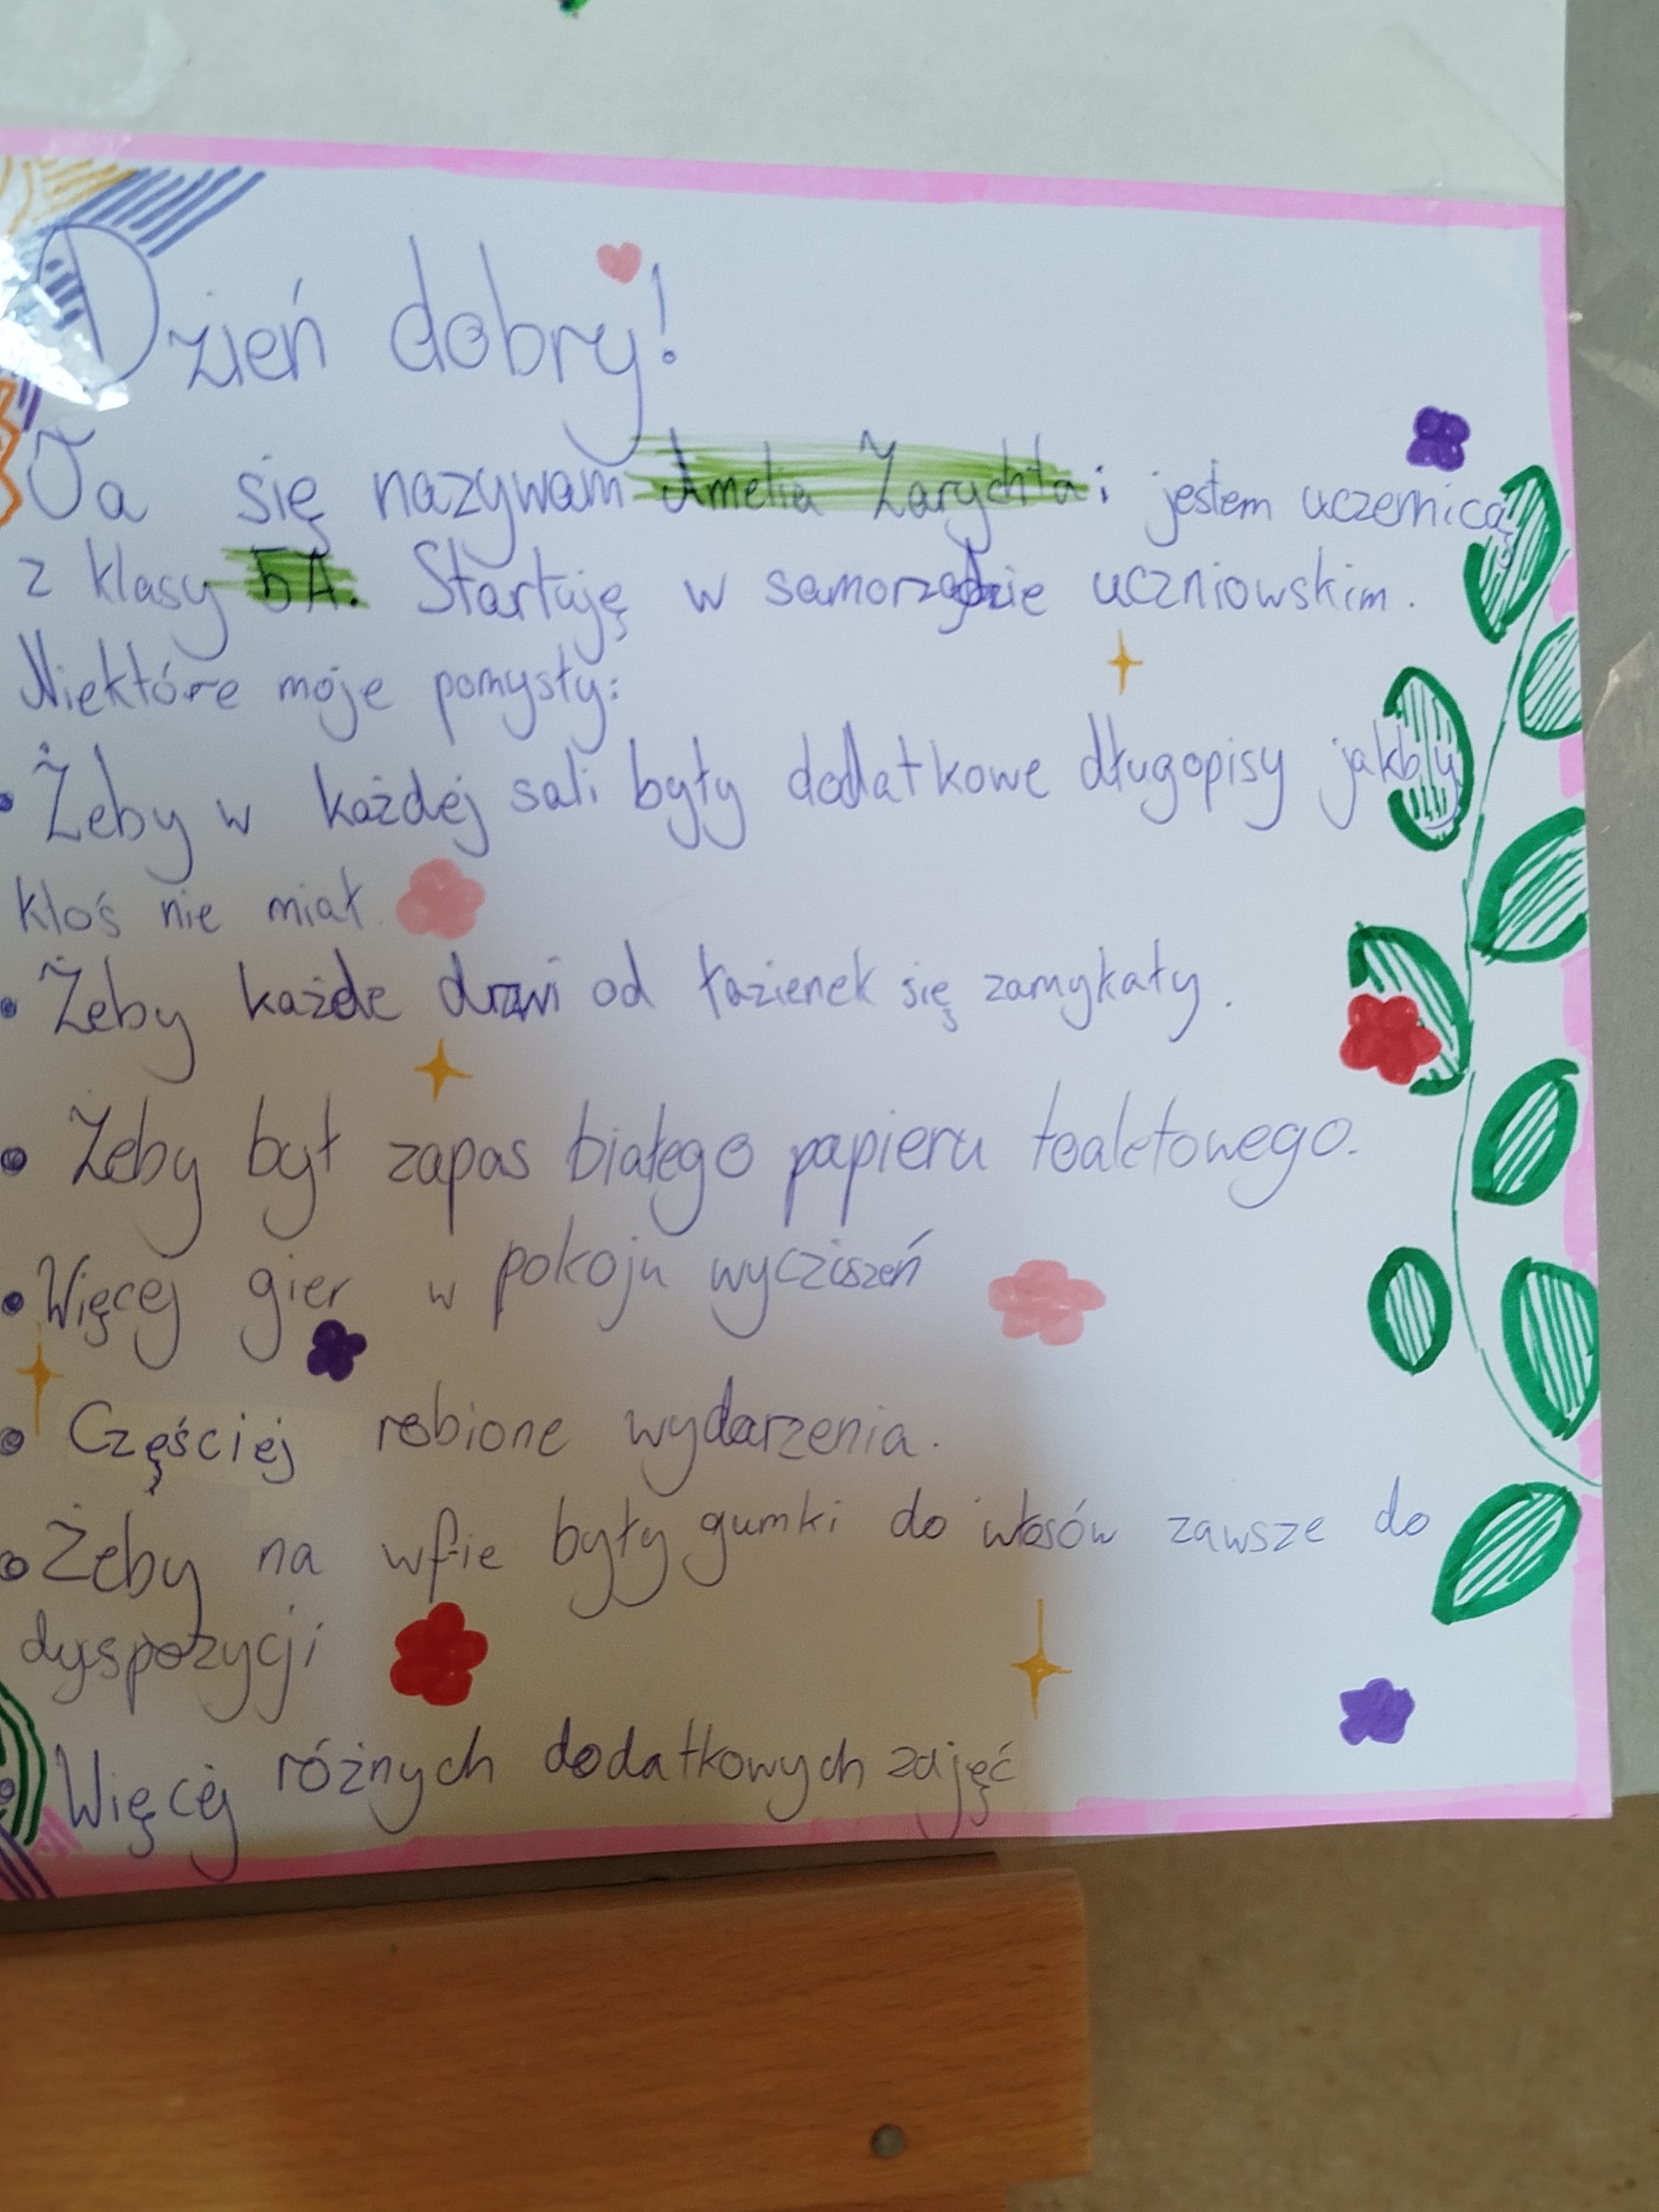 Dzień dobry!
Ja się nazywam Amelia Zarychta i jestem uczennicą
z klasy 5A. Startuję w samorządzie uczniowskim.
Niektóre moje pomysły:
• Żeby w każdej sali były dodatkowe długopisy jakby
ktoś nie miał.
• Żeby każde drzwi od łazienek się zamykały.
• Żeby był zapas białego papieru toaletowego.
• Więcej gier w pokoju wycziszeń
• Częściej robione wydarzenia.
• Żeby na wfie były gumki do włosów zawsze do
dyspozycji
• Więcej różnych dodatkowych zajęć